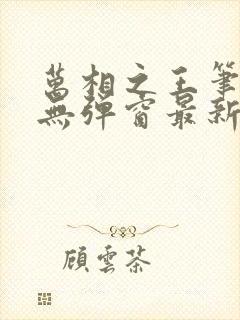 萬相之王筆
無彈窗最新
顧雲茶